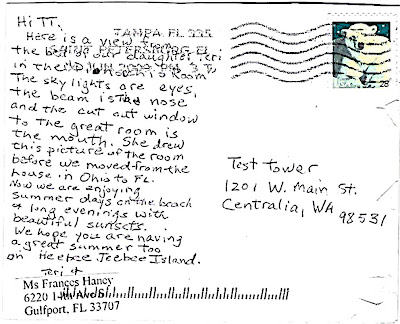 Hi TT.
Here is a view from
the best of our daughter Teri
in the room
The sky lights are eyes,
the beam is the nose
and the cut out window
to the great room is
the mouth. She drew
this picture of the room
before we moved from the
house in Ohio to FL.
Now we are enjoying
summer days on the beach
& long evenings with
beautiful sunsets.
We hope you are having
a great summer too
on Heebee Jeebee Island.
Teri &
Ms Frances Haney
6220
Gulfport, FL 33707
TAMPA FL 335
SAINT PETERSBURG FL
28
Test Tower
1201 W. Main St.
Centralia, WA
98531